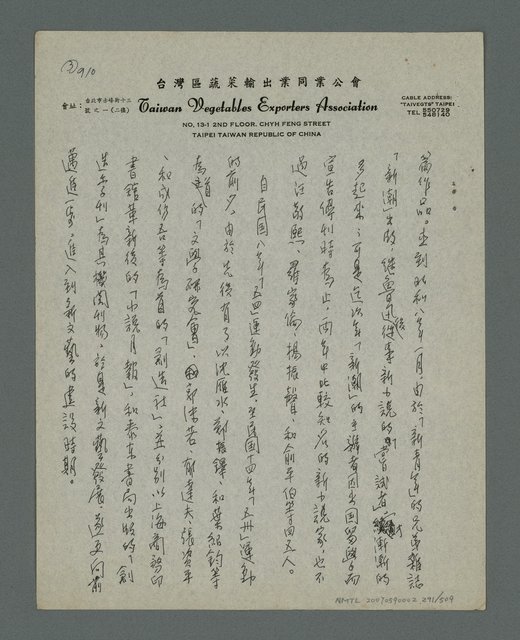 ③ 910
台灣區蔬菜輸出業同業公會
會址：台北市赤峰街十三號之一（二樓）
Taiwan Vegetables Exporters Association
NO. 13-1 2ND FLOOR. CHYH FENG STREET
TAIPEI TAIWAN REPUBLIC OF CHINA
CABLE ADDRESS:
"TAIVEGTS" TAIPEI
TEL 550729
548140
篇作品。直到民國八年一月，由於「新青年」的兄弟雜誌
「新潮」出版，繼魯迅後從事新小說的嘗試者漸漸的
多起來，可是迄次年「新潮」的主辦者因出國留學而
宣告停刊時為止，兩年中比較知名的新小說家，也不
過汪敬熙、羅家倫、楊振聲、和俞平伯等四五人。
自民國八年「五四」運動發生，至民國十四年「五卅」運動
的前夕，由於先後有了以沈雁冰、鄭振鐸、和葉紹鈞等
為首的「文學研究會」，郭沫若、郁達夫、張資平
、和成仿吾等為首的「創造社」，並分別以上海商務印
書館革新後的「小說月報」，和泰東書局出版的「創
造季刊」為其機關刊物，於是新文藝發展，遂更向前
邁進一步，進入到了新文藝的建設時期。
NMTL 20070590002 291/509